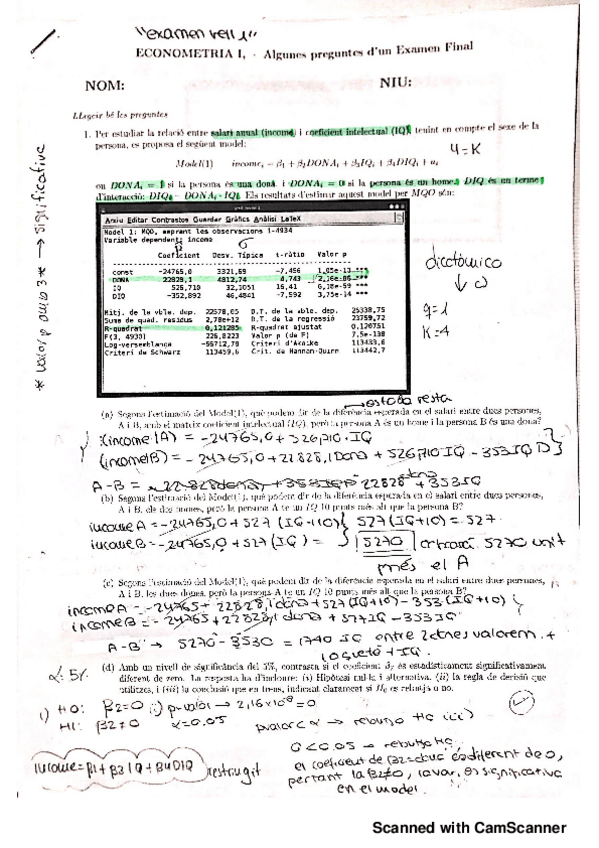 "examen vell 1"
ECONOMETRIA I, - Algunes preguntes d'un Examen Final
NOM: NIU:
Llegeix bé les preguntes
1. Per estudiar la relació entre salari anual (income) i coeficient intelectual (IQ), tenint en compte el sexe de la
persona, es proposa el següent model:
4=K
Model(1) income_i = β1 + β2DONA_i + β3IQ_i + β4DIQ_i + u_i
on DONA_i = 1 si la persona és una dona, i DONA_i = 0 si la persona és un home. DIQ és un terme
d'interacció: DIQ_i = DONA_i · IQ_i. Els resultats d'estimar aquest model per MQO són:
* valor p amb 3* → significative
Arxiu Editar Contrastos Guardar Gràfics Anàlisi LaTeX
Model 1: MQO, emprant les observacions 1-4934
Variable dependent: income
Coeficient Desv. Típica t-ràtio Valor p
const -24765,0 3321,69 -7,456 1,05e-13 ***
DONA 22828,1 4812,74 4,743 2,16e-06 ***
IQ 526,710 32,1051 16,41 6,18e-59 ***
DIQ -352,892 46,4841 -7,592 3,75e-14 ***
Mitj. de la vble. dep. 22578,05 D.T. de la vble. dep. 25338,75
Suma de quad. residus 2,78e+12 D.T. de la regressió 23759,72
R-quadrat 0,121285 R-quadrat ajustat 0,120751
F(3, 4930) 226,8223 Valor p (de F) 7,5e-138
Log-versemblança -56712,78 Criteri d'Akaike 113433,6
Criteri de Schwarz 113459,6 Crit. de Hannan-Quinn 113442,7
dicotòmico
↓
q=1
K=4
(a) Segons l'estimació del Model(1), què podem dir de la diferència esperada en el salari entre dues persones,
A i B, amb el mateix coeficient intelectual (IQ), però la persona A és un home i la persona B és una dona?
(income|A) = -24765,0 + 526,710·IQ
(income|B) = -24765,0 + 22828,1 Dona + 526,710 IQ - 353 IQ D
(b) Segons l'estimació del Model(1), què podem dir de la diferència esperada en el salari entre dues persones,
A i B, els dos homes, però la persona A té un IQ 10 punts més alt que la persona B?
income A = -24765,0 + 527 (IQ+10) 527(IQ+10) = 527
income B = -24765,0 + 527 (IQ) = 5270
més el A
(c) Segons l'estimació del Model(1), què podem dir de la diferència esperada en el salari entre dues persones,
A i B, les dues dones, però la persona A té un IQ 10 punts més alt que la persona B?
income A = -24765 + 22828,1 dona + 527 (IQ+10) - 353 (IQ+10)
income B = -24765 + 22828,1 dona + 527 IQ - 353 IQ
A-B → 5270 - 3530 = 1740 IQ entre 2 dones valorem +
(d) Amb un nivell de significància del 5%, contrasta si el coeficient β2 és estadísticament significativament
diferent de zero. La resposta ha d'incloure: (i) Hipòtesi nul·la i alternativa, (ii) la regla de decisió que
utilitzes, i (iii) la conclusió que en treus, indicant clarament si H0 es rebutja o no.
α: 5%
i) H0: β2=0 ii) p valor → 2,16x10 = 0
H1: β2≠0 α=0.05 p valor < α → rebutjo H0 iii)
0 < 0.05 → rebutjo H0
el coeficient de β2=dona és diferent de 0,
pertant la β2≠0, la var. és significativa
en el model.
income = β1 + β3 IQ + β4 DIQ restringit
Scanned with CamScanner